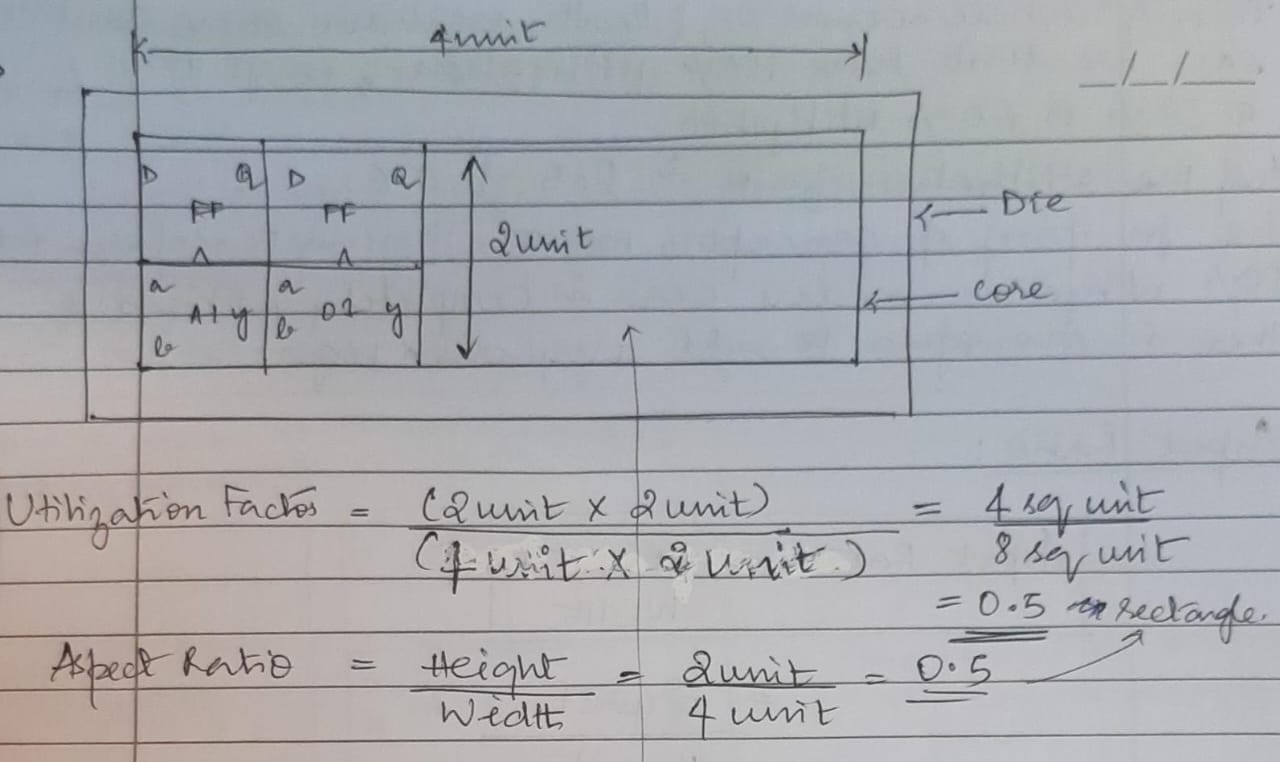 4unit
_/_/__.
D Q D Q
FF FF
2unit
Die
a a
A1 y O2 y
b b
core
Utilization Factor = (2unit x 2unit) / (4 unit x 2 unit) = 4 sq unit / 8 sq unit
= 0.5 rectangle.
Aspect Ratio = Height / Width = 2unit / 4 unit = 0.5